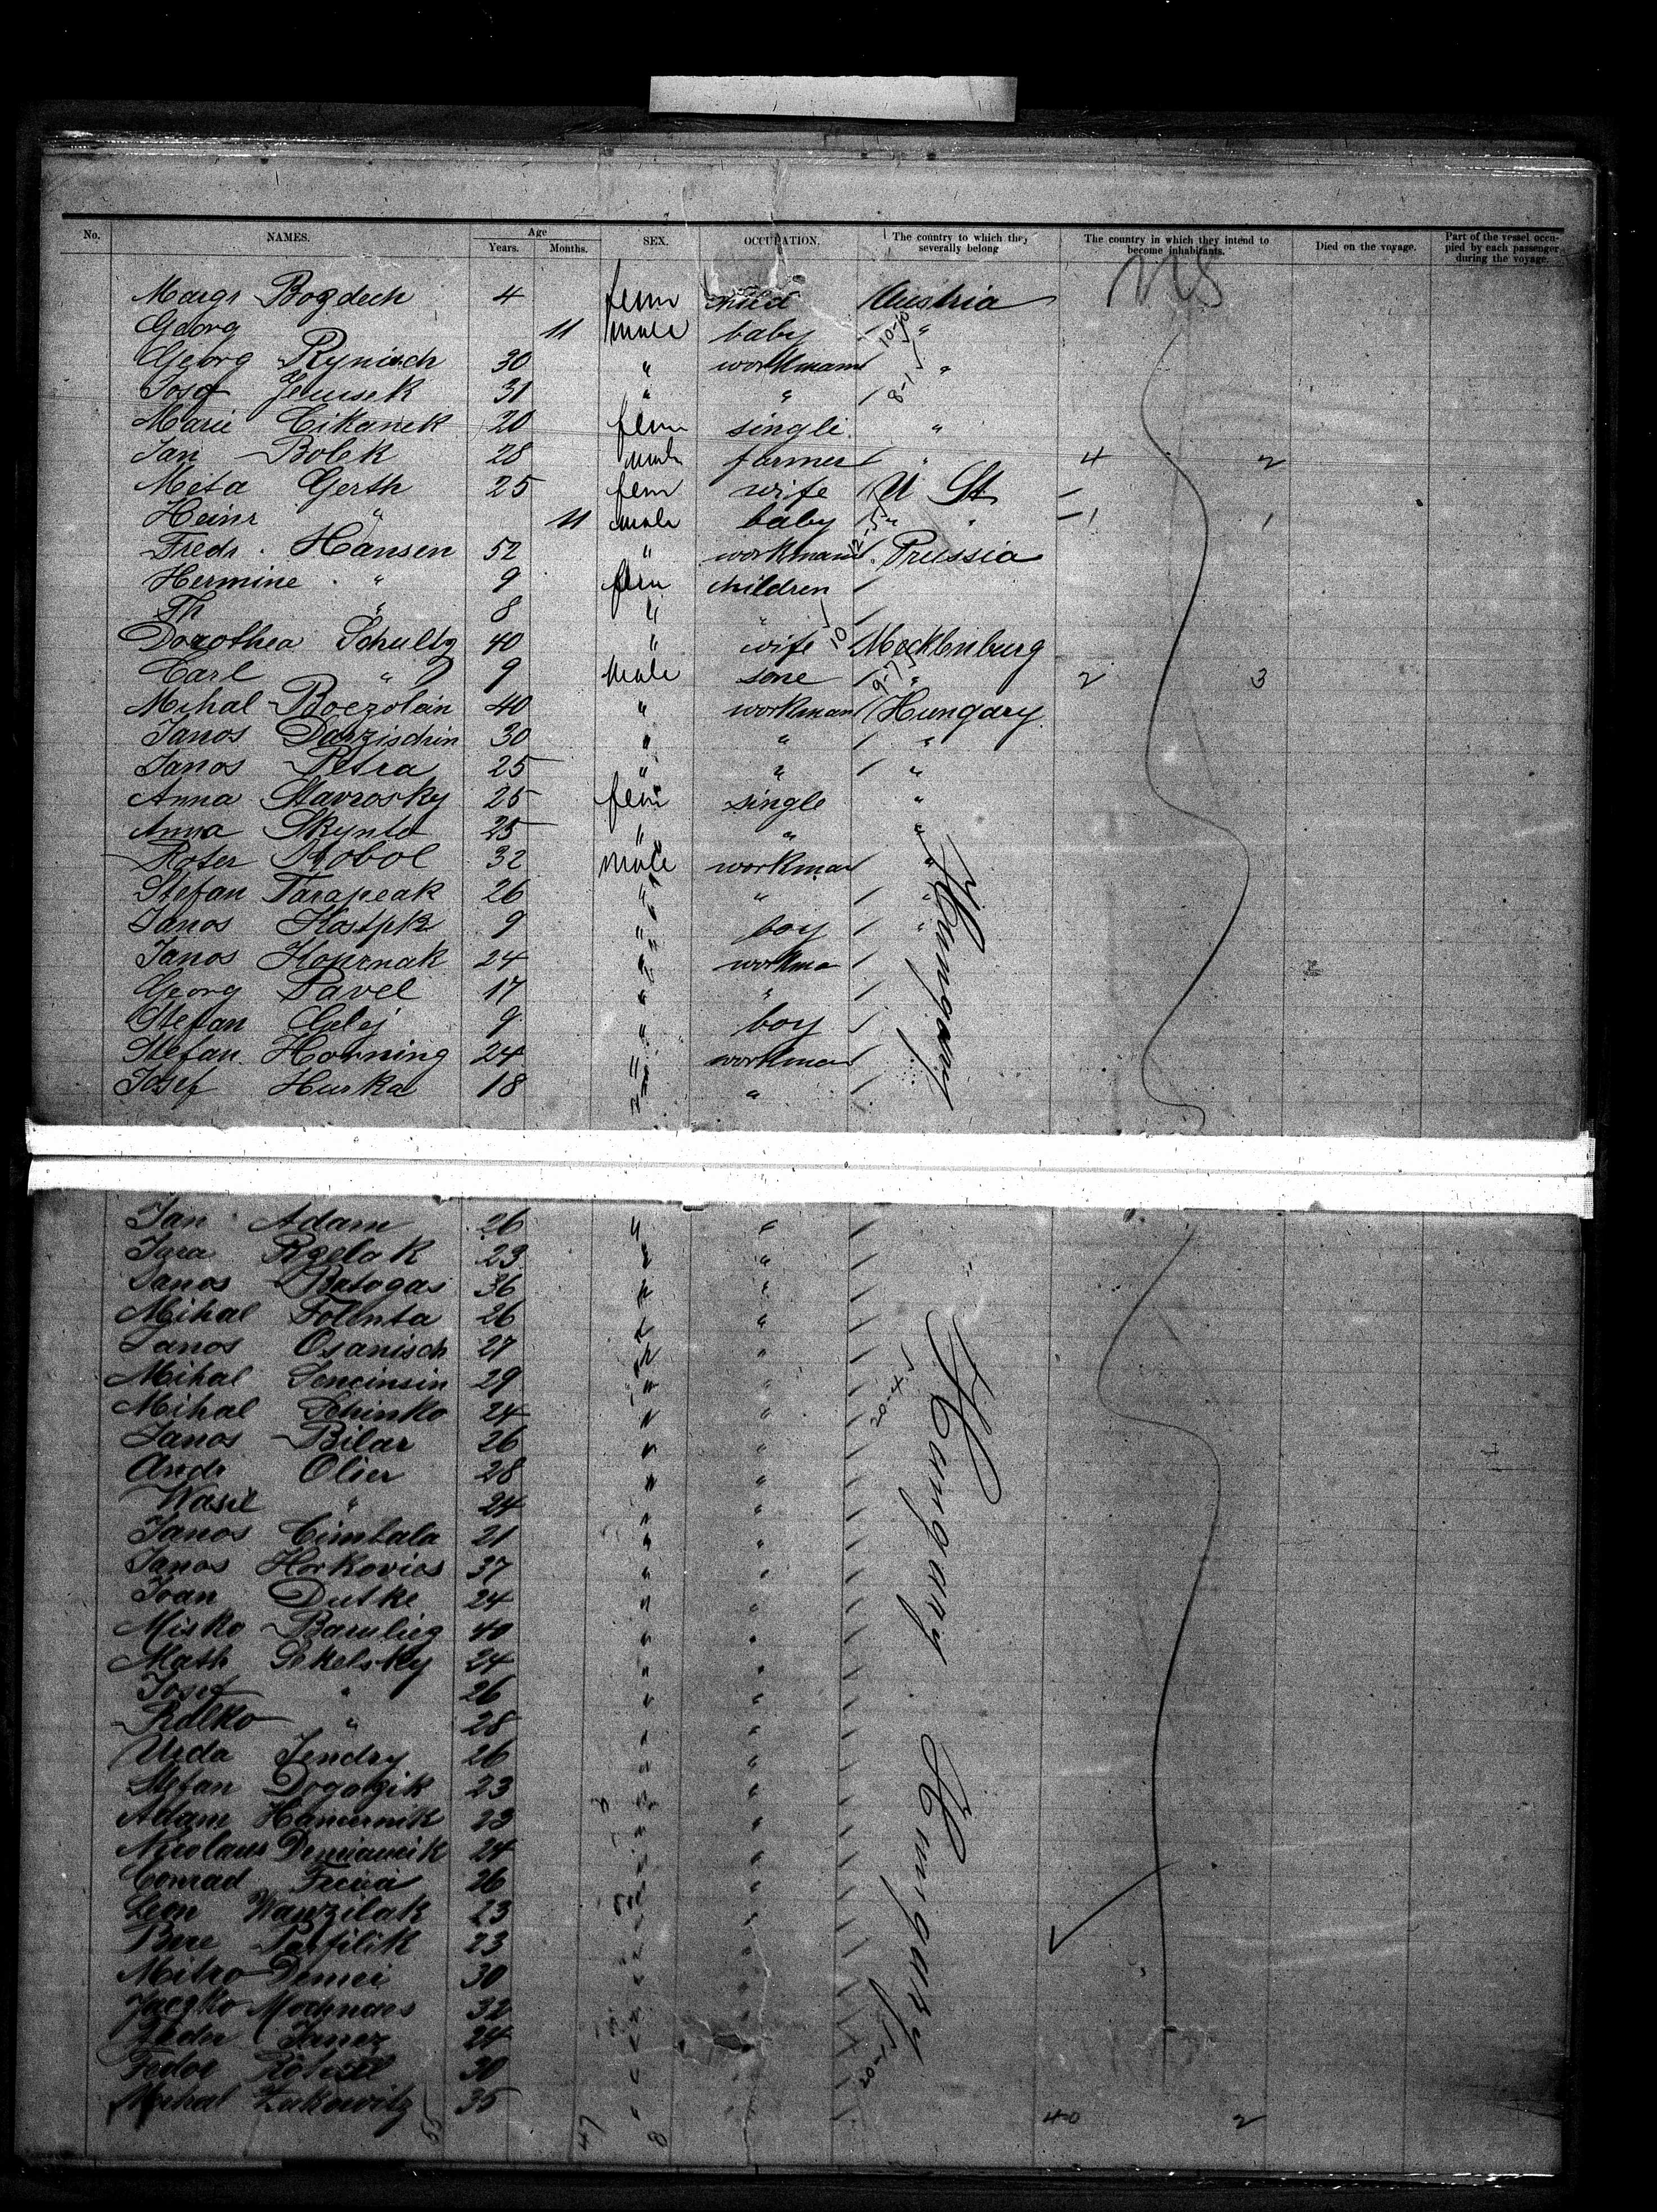 No. NAMES. Age Years. Months. SEX. OCCUPATION. The country to which they severally belong The country in which they intend to become inhabitants. Died on the voyage. Part of the vessel occupied by each passenger during the voyage.
US
Margr Bozdech 4 fem child Austria
Georg 11 male baby " 10-10
Georg Rynisch 30 " workmann "
Josef 31 " " 8-15
Marie Cikanek 20 fem single "
Jan Bolek 28 male farmer " 4 2
Meta Gerth 25 fem wife U St
Heinr " 11 male baby " " 1 1
Fredr. Hansen 52 " workmann Prussia
Hermine " 9 fem children
Th " 8 " "
Dorothea Schultz 40 " wife 10 Mecklenburg
Carl " 9 male sone " 2 3
Mihal Boczolan 40 " workman Hungary
Janos Darzischin 30 " " "
Janos Petra 25 " " "
Anna Stavrosky 25 fem single "
Anna Skynta 25 " " "
Roter Kobol 32 male workman "
Stefan Tarapeak 26 " " "
Janos 9 " boy "
Janos Hournak 24 " workma
Georg Pavel 17 " "
Stefan Gulej 9 " boy
Stefan Horning 24 " workman
Josef Hurka 18 " "
Hungary
Jan Adam 26 " "
Jura 23 " "
Janos Batogas 36 " "
Mihal Folenta 26 " "
Janos Osanisch 27 " "
Mihal Sencinsin 29 " "
Mihal Schinko 24 " " 20-45
Janos Bilar 26 " "
Andr Olier 28 " "
Wasil " 24 " "
Janos Cimbala 21 " "
Janos Horkovics 37 " "
Joan Dutke 24 " "
Misko 40 " "
Math Sekelsky 24 " "
Josef " 26 " "
" 28 " "
Urda Jendry 26 " "
Stefan Dogozik 23 " "
Adam Hamernik 23 " "
Nicolaus 24 " "
Conrad 26 " "
Leon Wanzilak 23 " "
Parfilik 23 " "
Mitro Demei 30 "
Jaczko 32 "
Janez 24 "
Fedor 30 " 20-15
Mihal Zukowitz 35 "
Hungary
Hungary
55 47 8 40 2